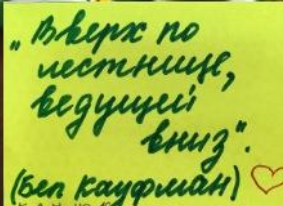 „Вверх по
лестнице,
ведущей
вниз".
(Бел Кауфман)